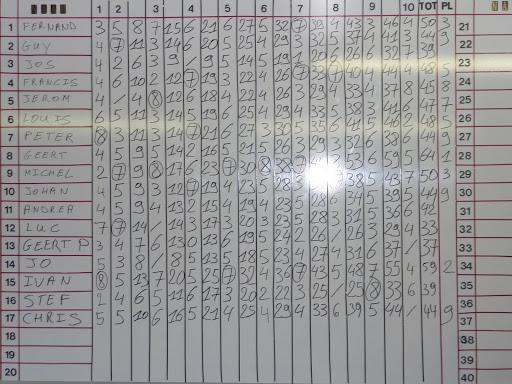 1 2 3 4 5 6 7 8 9 10 TOT PL
1 FERNAND 3 5 8 7 15 6 21 6 27 5 32 7 39 4 43 3 46 4 50 3 21
2 GUY 4 7 11 3 14 6 20 5 25 4 29 3 32 5 37 4 41 3 44 9 22
3 JOS 4 2 6 3 9 / 9 5 14 5 19 1 20 6 26 6 32 7 39 23
4 FRANCIS 4 6 10 2 12 7 19 3 22 4 26 7 33 7 40 4 44 4 48 5 24
5 JEROM 4 / 4 8 12 6 18 4 22 4 26 3 29 4 33 4 37 8 45 8 25
6 LOUIS 6 5 11 3 14 5 19 6 25 4 29 4 33 5 38 3 41 6 47 7 26
7 PETER 8 3 11 3 14 7 21 6 27 3 30 5 35 6 41 5 46 2 48 5 27
8 GEERT 4 5 9 5 14 2 16 5 21 5 26 3 29 3 32 6 38 6 44 9 28
9 MICHEL 2 7 9 8 17 6 23 7 30 8 38 53 6 59 5 64 1 29
10 JOHAN 4 5 9 3 12 7 19 4 23 5 28 38 5 43 7 50 3 30
11 ANDREA 4 5 9 4 13 2 15 4 19 4 23 5 28 6 34 5 39 5 44 9 31
12 LUC 7 7 14 / 14 3 17 3 20 3 23 5 28 3 31 5 36 6 42 32
13 GEERT P 3 4 7 6 13 0 13 6 19 5 24 2 26 / 26 3 29 4 33 33
14 JO 5 3 8 / 8 5 13 5 18 5 23 4 27 4 31 6 37 / 37 34
15 IVAN 8 5 13 7 20 5 25 7 32 4 36 7 43 5 48 7 55 4 59 2 35
16 STEF 2 4 6 5 11 6 17 3 20 2 22 3 25 / 25 8 33 6 39 36
17 CHRIS 5 5 10 6 16 5 21 4 25 4 29 4 33 6 39 5 44 / 44 9 37
18 38
19 39
20 40